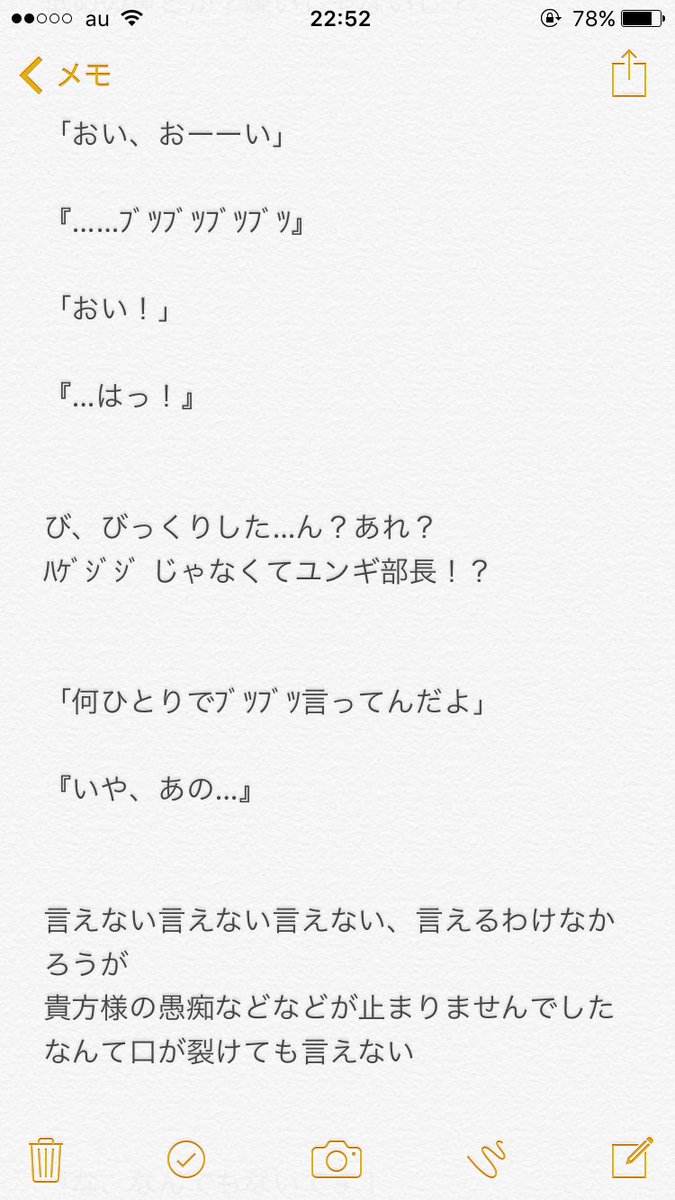 au 22:52 78%
メモ
「おい、おーーい」
『……ﾌﾞﾂﾌﾞﾂﾌﾞﾂﾌﾞﾂ』
「おい！」
『…はっ！』
び、びっくりした…ん？あれ？
ﾊｹﾞｼﾞｼﾞ じゃなくてユンギ部長！？
「何ひとりでﾌﾞﾂﾌﾞﾂ言ってんだよ」
『いや、あの…』
言えない言えない言えない、言えるわけなか
ろうが
貴方様の愚痴などなどが止まりませんでした
なんて口が裂けても言えない